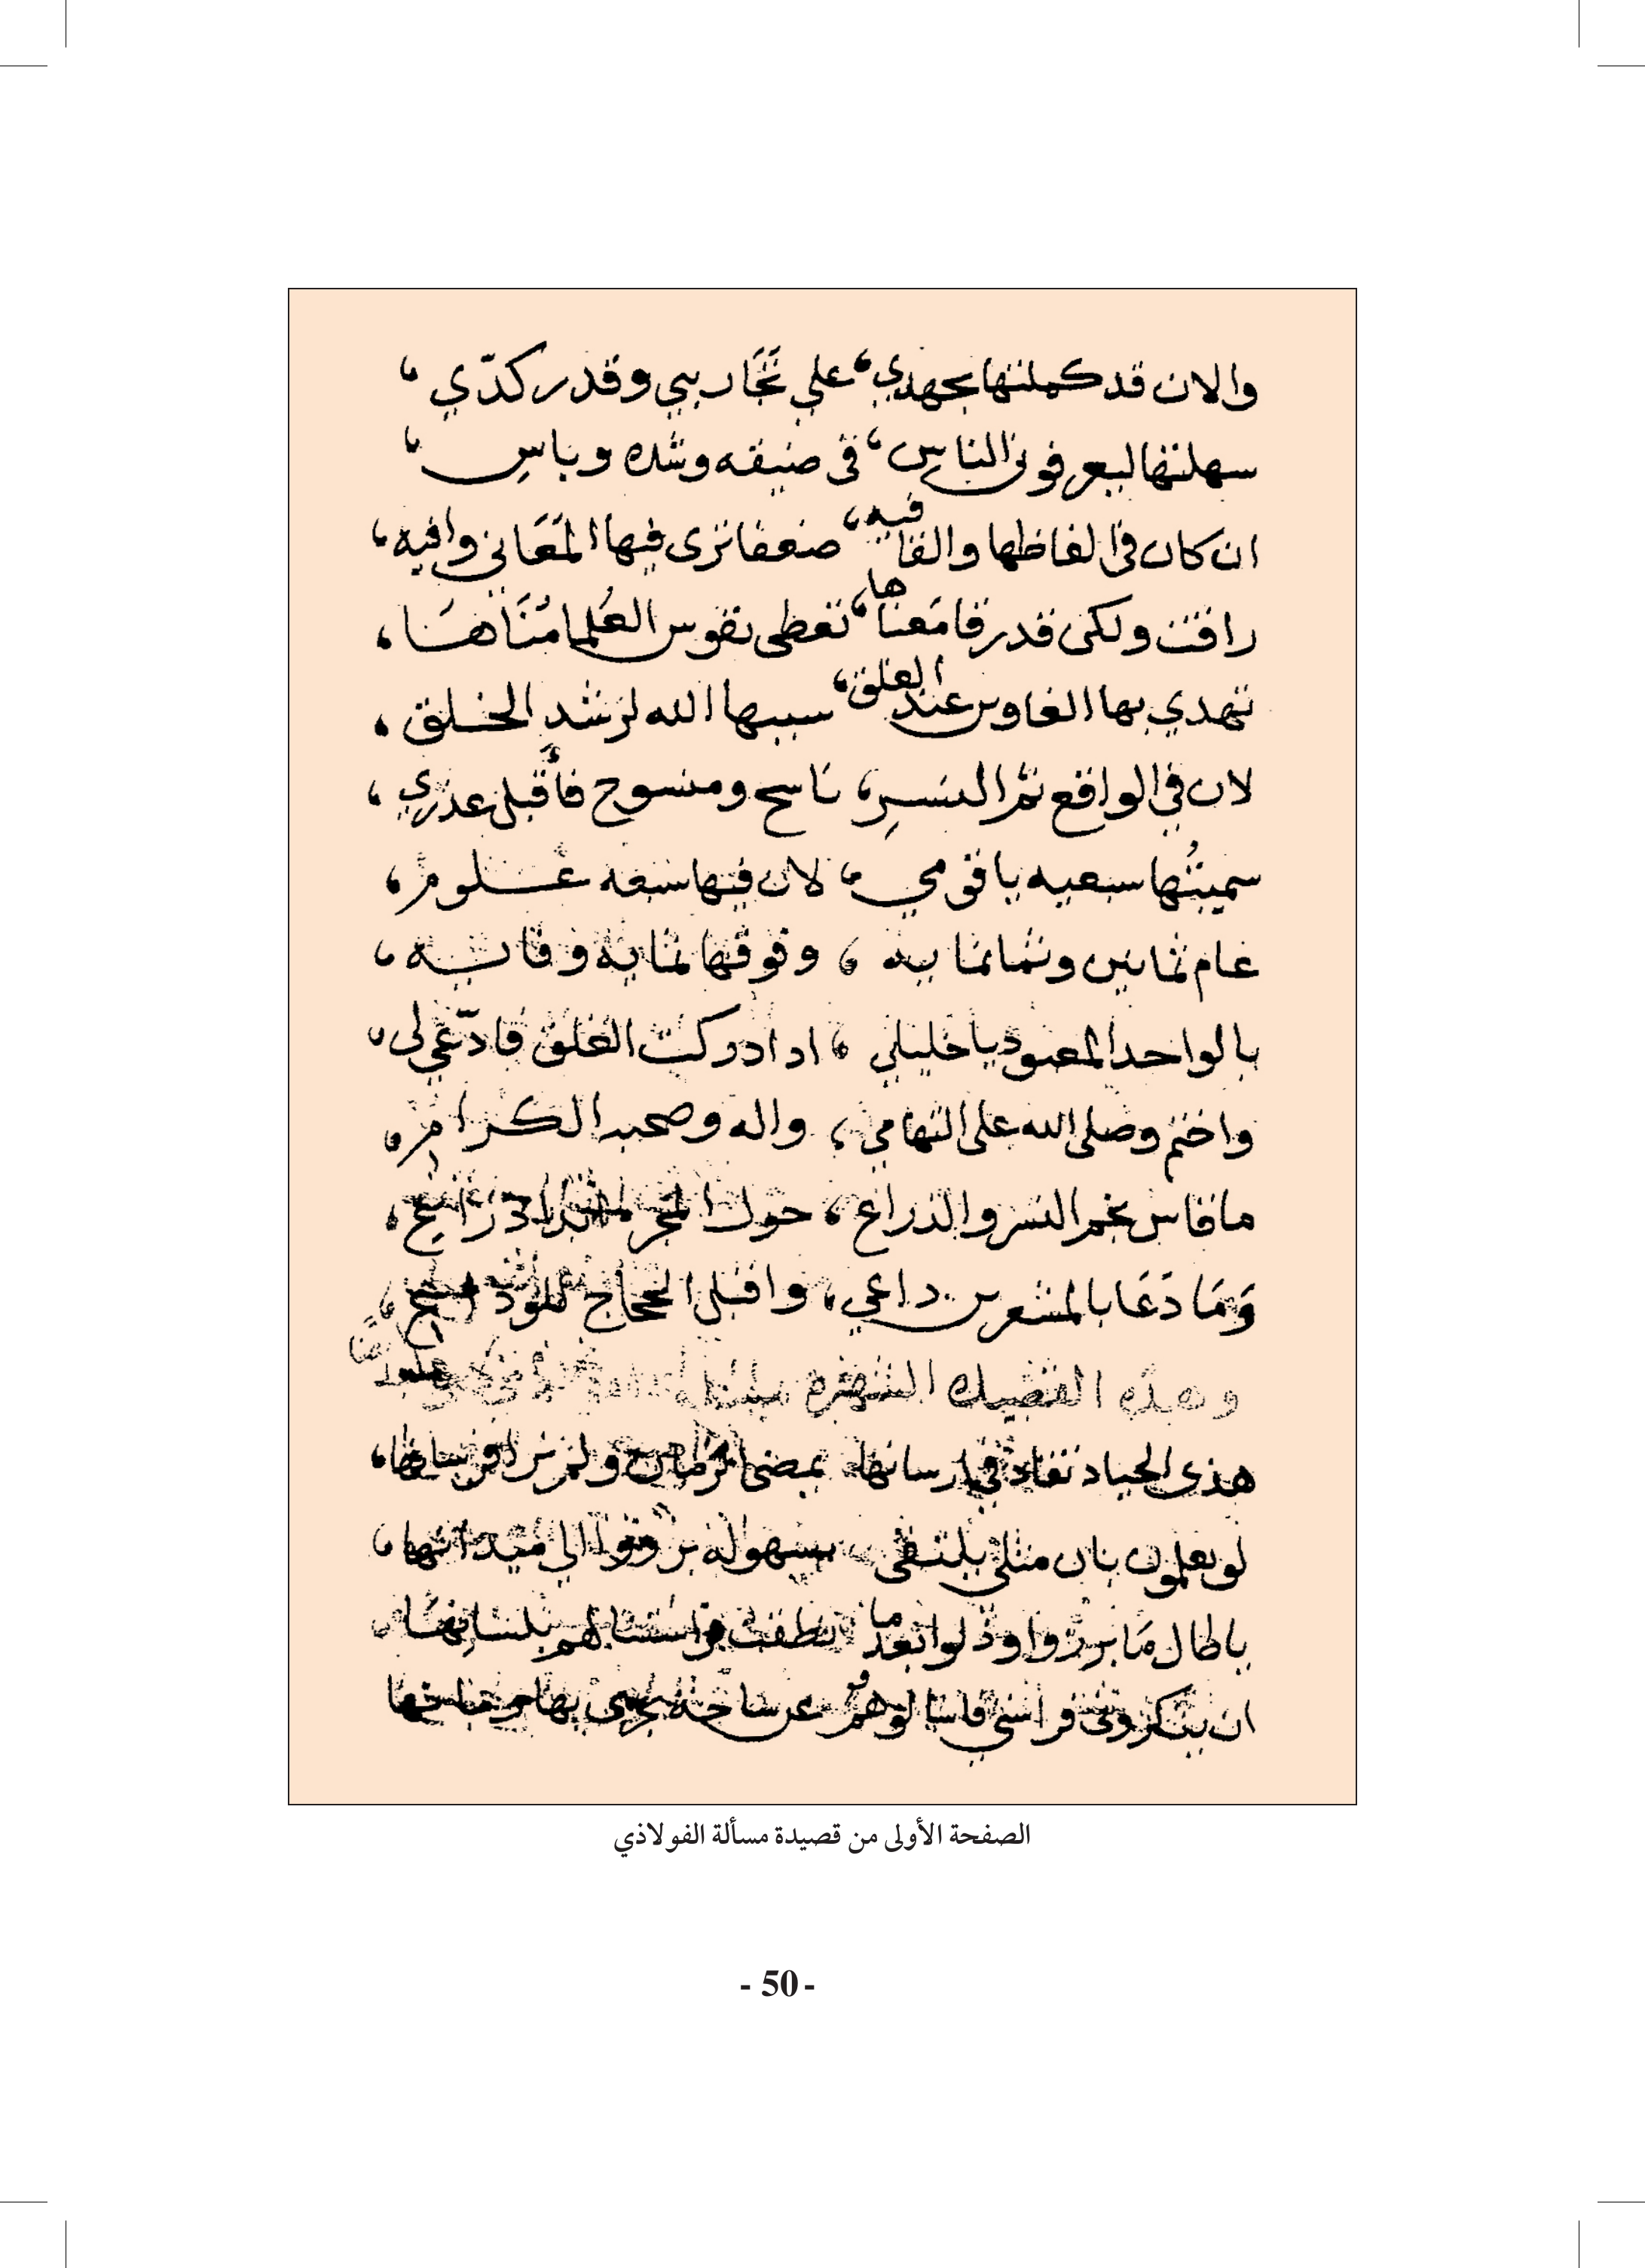 والان قد كملتها بجهدي، علي تجاربي وقدر كدّي،
سهلتها ليعرفون الناس، في ضيقه وشده وباس،
ان كان في الفاظها والقافيه، ضعفا ترى فيها المعاني وافيه،
راقت ولكن قدرقا معناها، تعطى نفوس العلما مناها،
تهدي بها الغاوين عند الغلق، سببها الله لرشد الخلق،
لان في الواقع ثم النسر، ناسخ ومنسوخ فأقبل عذري،
سميتها سبعيه ياقومي، لان فيها سبعه علوم،
عام ثمانين وثمانمايه، وفوقها ثمانيه وفاييه،
بالواحد المعبود يا خليلي، اذا دركت الغلق فادعي لي،
واختم وصلى الله على التهامي، واله وصحبه الكرام،
ما قاس نجم النسر والذراع، حول
وما دعا بالمشعرين داعي، واقبل الحجاج
وهذه القصيده الشهره
هذى الجياد تقاد في ارسانها يمضى الزمان ولم
لو يعلمون بان مثلي يلتقى بسهوله برزوا الى ميدانها،
يا طال ما برزوا وذلوا بعدما نطقت فراستنا لهم بلسانها
ان ينكروني فراستي فاسالوهم عن ساحة يجرى بها
الصفحة الأولى من قصيدة مسألة الفولاذي
- 50 -